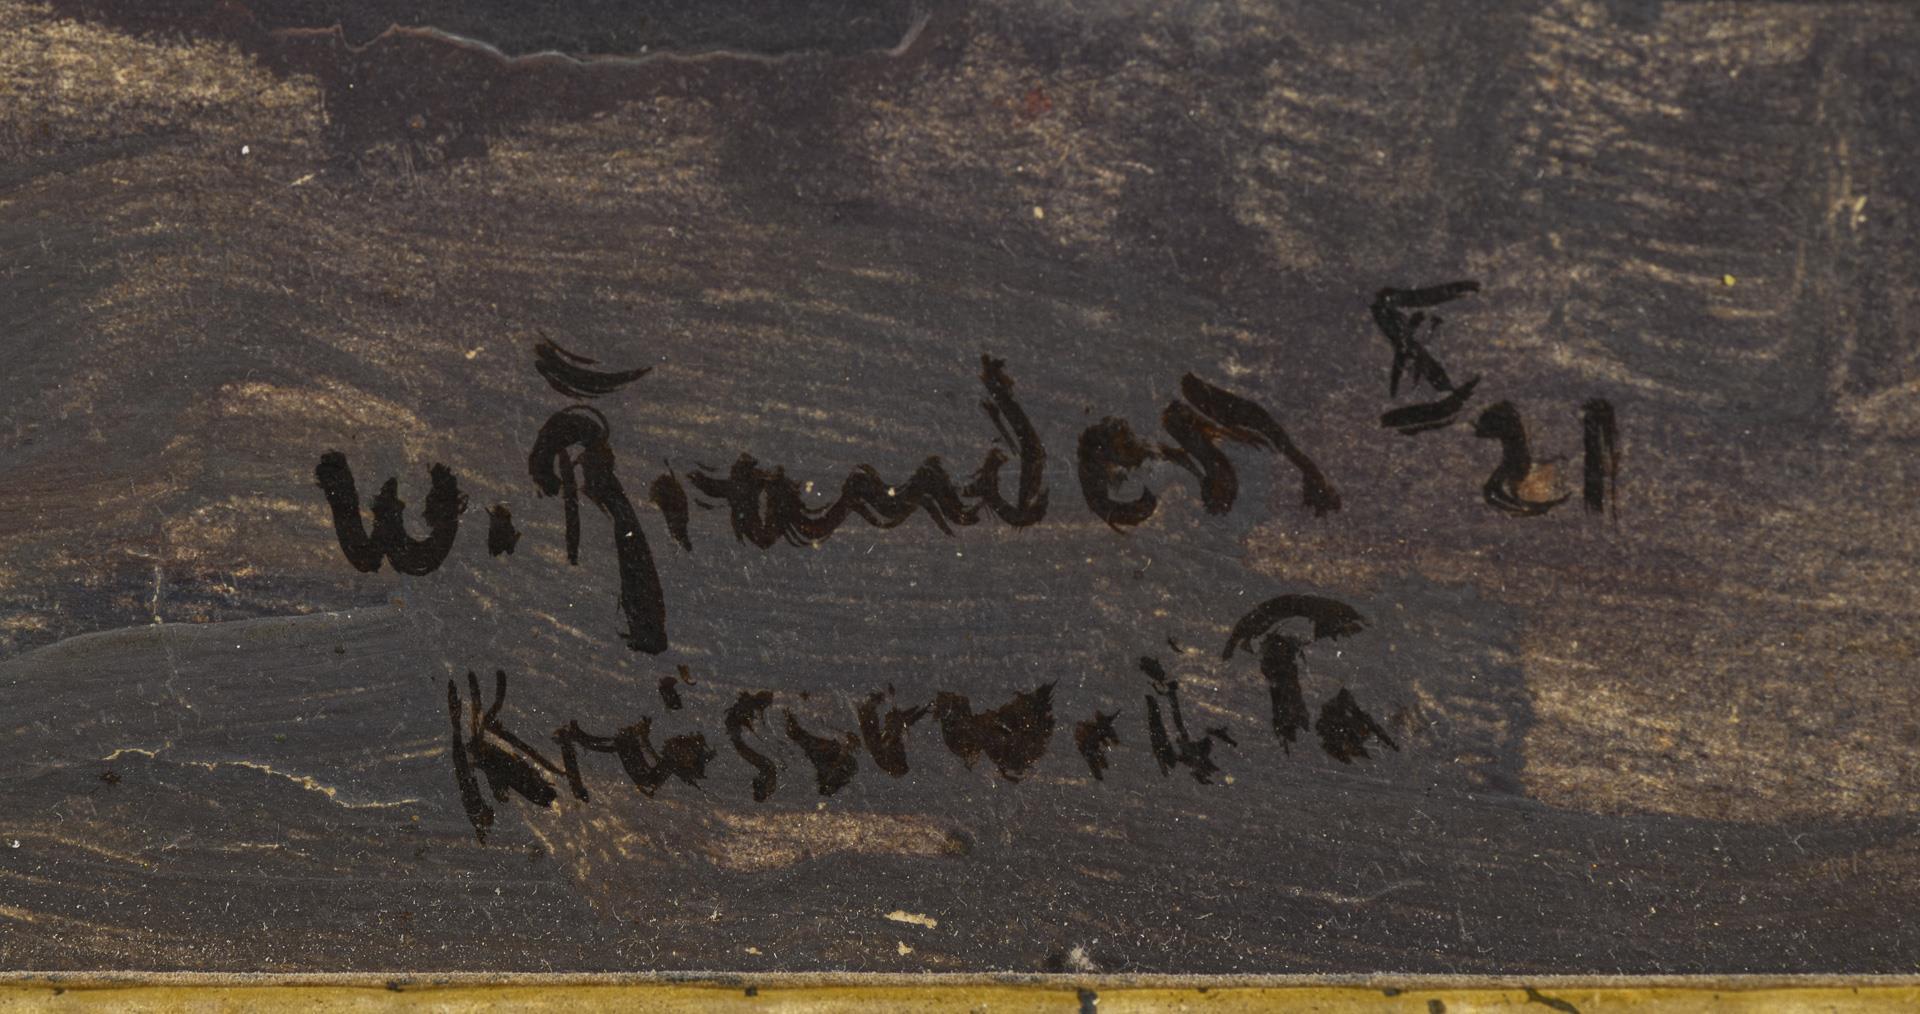 W. Brandes 21
Krüssow i. Po